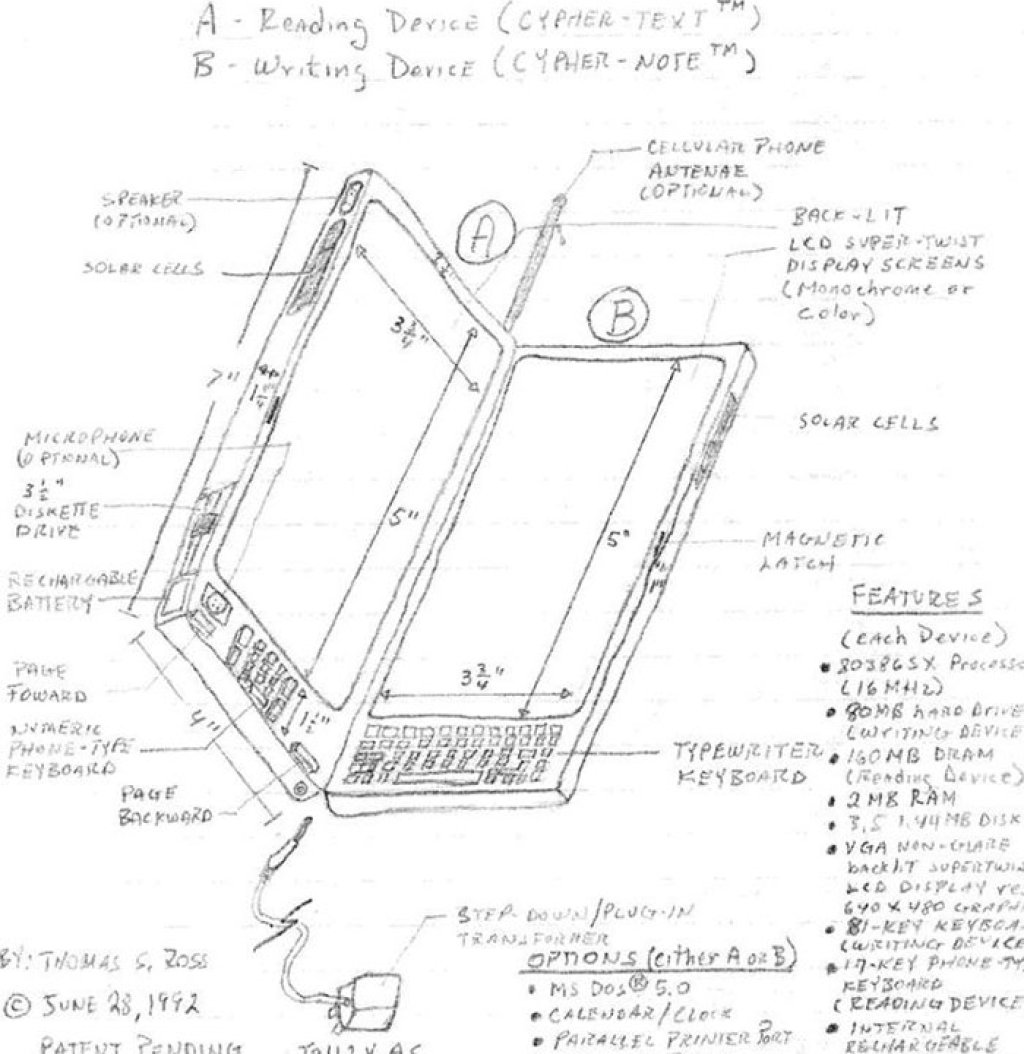 A - Reading Device (CYPHER-TEXT™)
B - Writing Device (CYPHER-NOTE™)
CELLULAR PHONE
ANTENAE
(OPTIONAL)
SPEAKER
(OPTIONAL)
SOLAR CELLS
A
BACK-LIT
LCD SUPER-TWIST
DISPLAY SCREENS
(Monochrome or
Color)
B
3 3/4"
7"
SOLAR CELLS
MICROPHONE
(OPTIONAL)
3 1/2"
DISKETTE
DRIVE
5"
5"
MAGNETIC
LATCH
RECHARGABLE
BATTERY
PAGE
FOWARD
NUMERIC
PHONE-TYPE
KEYBOARD
4"
1 1/2"
3 3/4"
PAGE
BACKWARD
TYPEWRITER
KEYBOARD
FEATURES
(each Device)
• 80386SX Processo
(16 MHz)
• 80MB HARD DRIVE
(WRITING DEVICE
• 160MB DRAM
(Reading Device)
• 2 MB RAM
• 3.5 1.44 MB DISK
• VGA NON-GLARE
BACKLIT SUPERTWIS
LCD DISPLAY
640 X 480 GRAPH
• 81-KEY KEYBOA
(WRITING DEVICE
• 17-KEY PHONE-TY
KEYBOARD
(READING DEVICE
• INTERNAL
RECHARGEABLE
STEP-DOWN/PLUG-IN
TRANSFORMER
OPTIONS (either A or B)
• MS DOS® 5.0
• CALENDAR/CLOCK
• PARALLEL PRINTER PORT
BY: THOMAS S. ROSS
© JUNE 28, 1992
PATENT PENDING